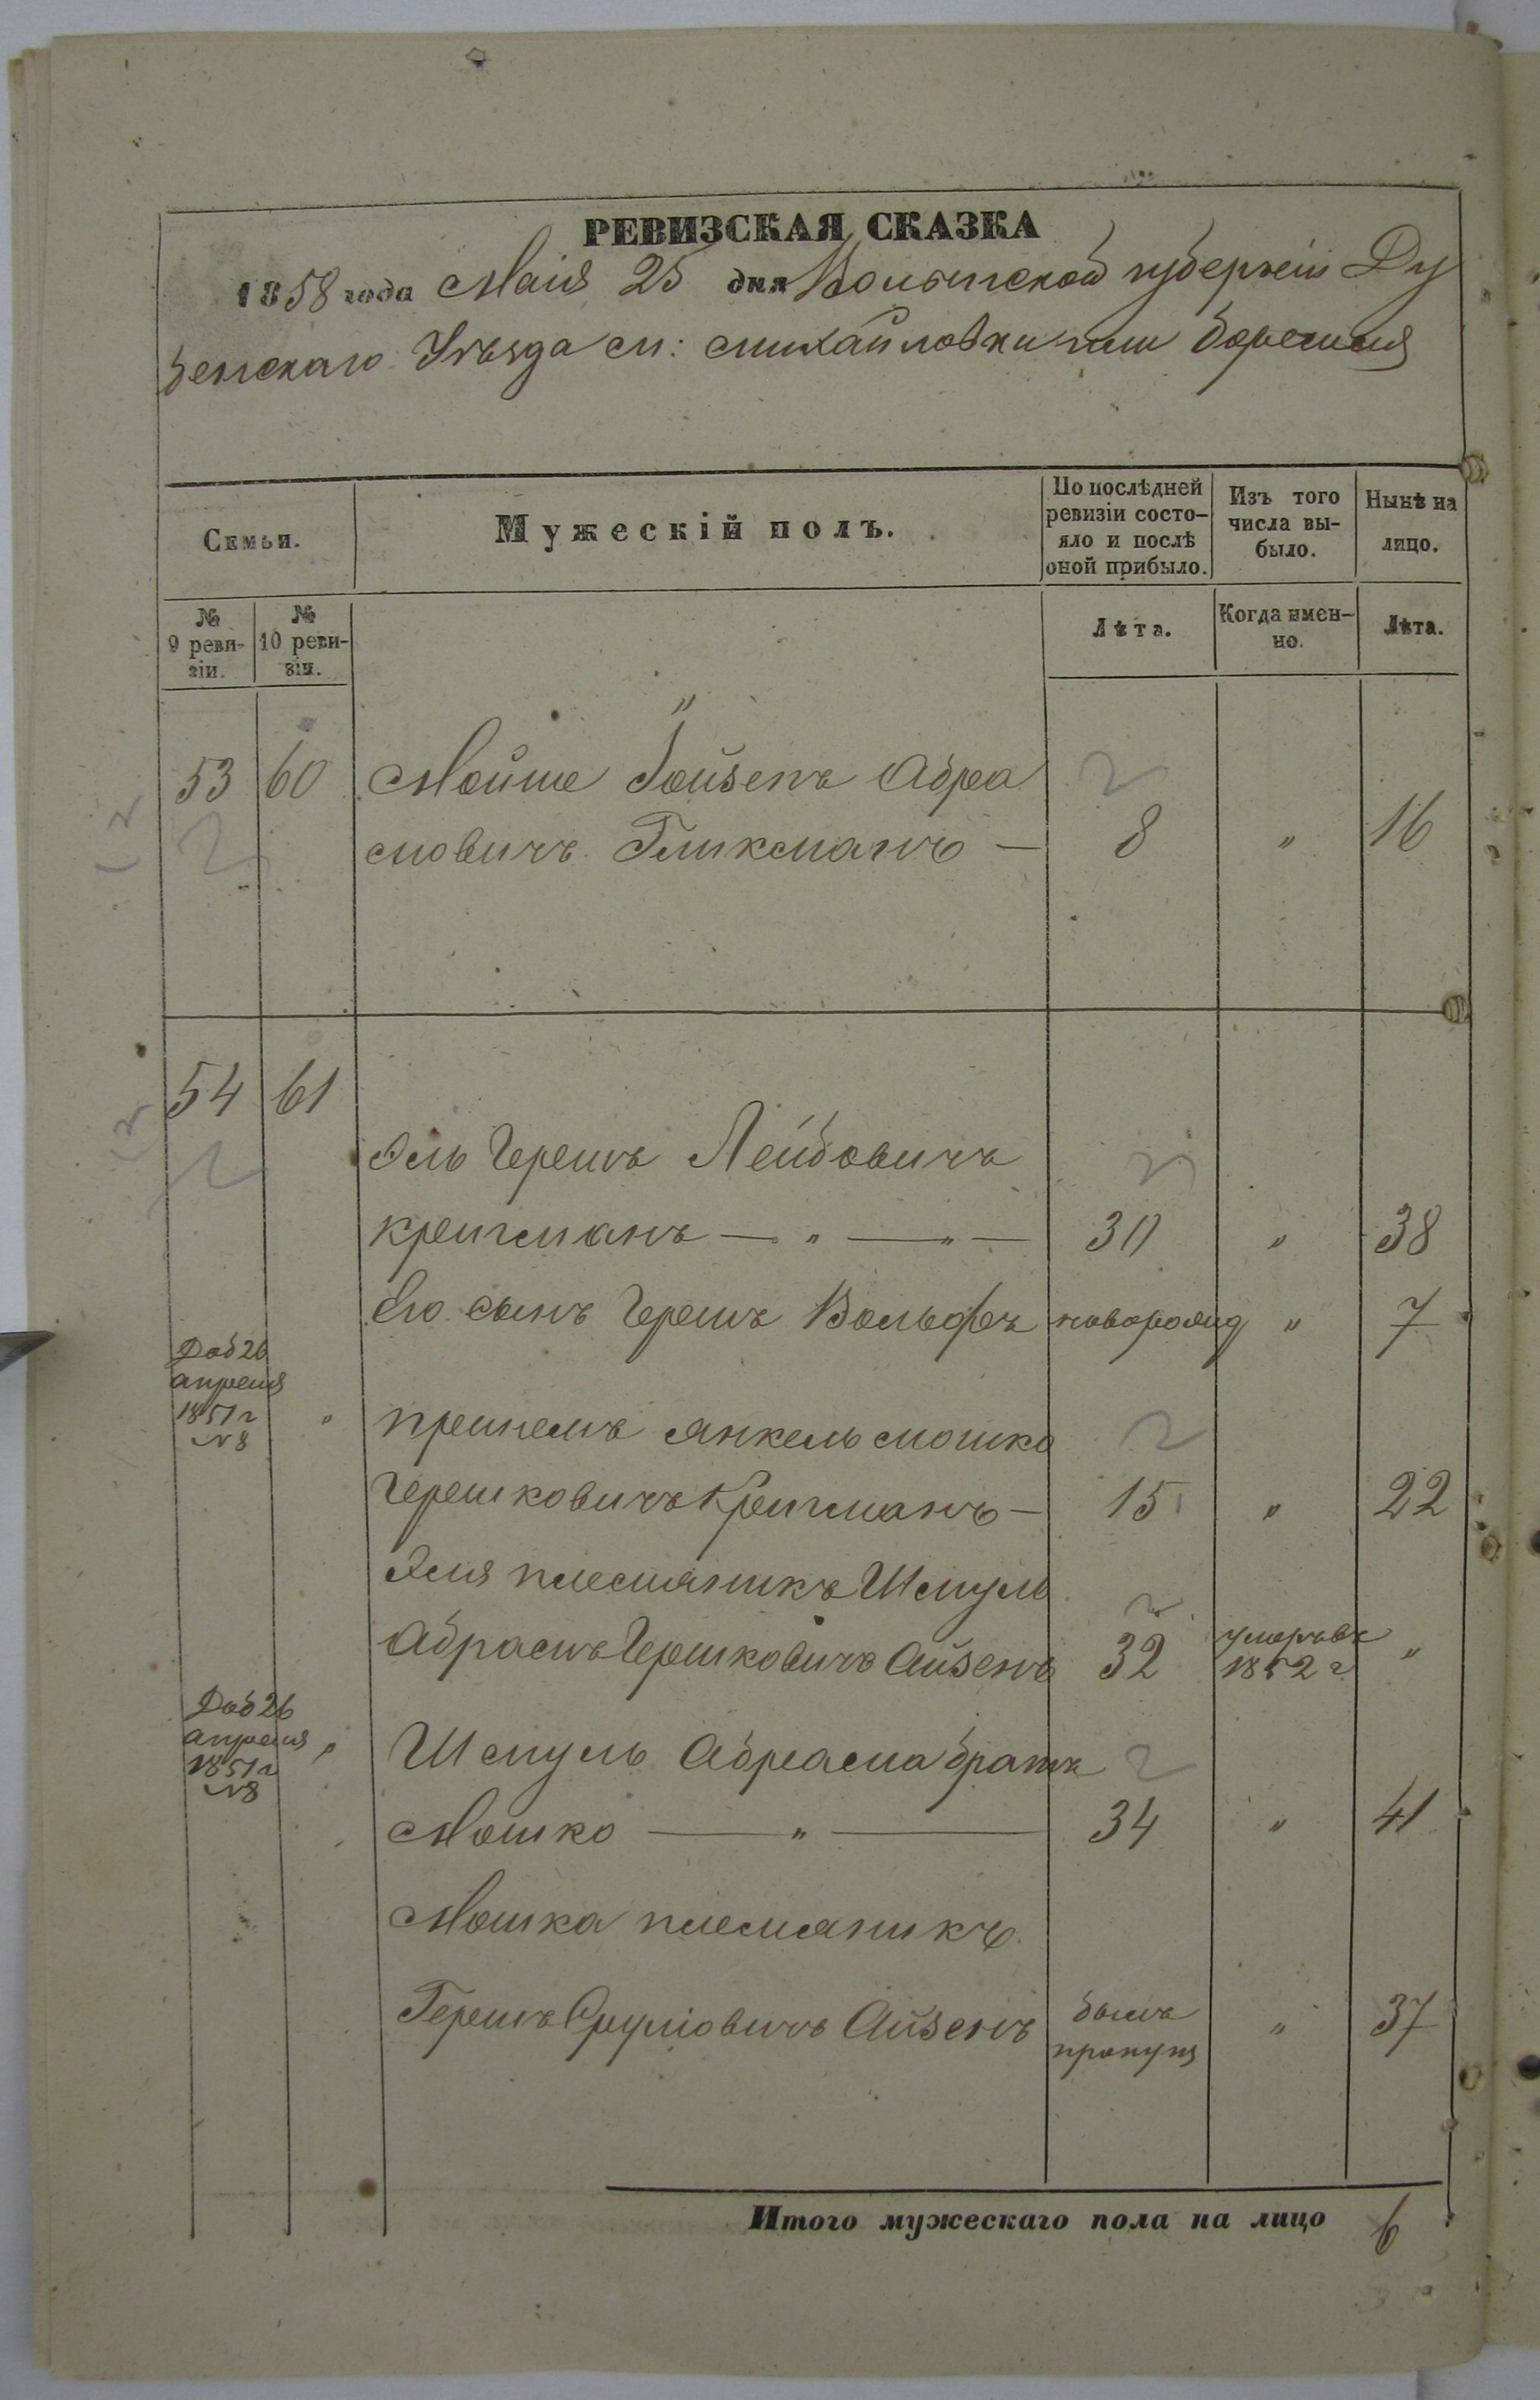 РЕВИЗСКАЯ СКАЗКА
1858 года Маія 25 дня Волынской губерніи Ду
бенскаго Уѣзда м: михайловки или боремля
Семьи.
Мужескій полъ.
По послѣдней ревизіи состо-
яло и послѣ оной прибыло.
Изъ того числа вы-
было.
Нынѣ на лицо.
№ 9 реви-
зіи.
№ 10 реви-
зіи.
Лѣта.
Когда имен-
но.
Лѣта.
53 60 Мойше Іойзепъ Абра
мовичъ Гликманъ — 8 " 16
54 61
Эль Гершъ Лейбовичъ
кригманъ — " — " — 30 " 38
Его сынъ Гершъ Вольфъ новорожд " 7
Доб 26
апреля
1851 г
№ 8
" Янкель мошко
Гершковичъ Кригманъ — 15 " 22
племяникъ Шмуль
Абрамъ Гершковичъ Айзенъ 32 умеръ въ 1852 г "
Доб 26
апреля
1851 г
№ 8
" Шмуль Абрама братъ
Мошко — " — 34 " 41
Мошка племяникъ
Гершъ Сруліовичъ Айзенъ былъ пропущ " 37
Итого мужескаго пола на лицо 6